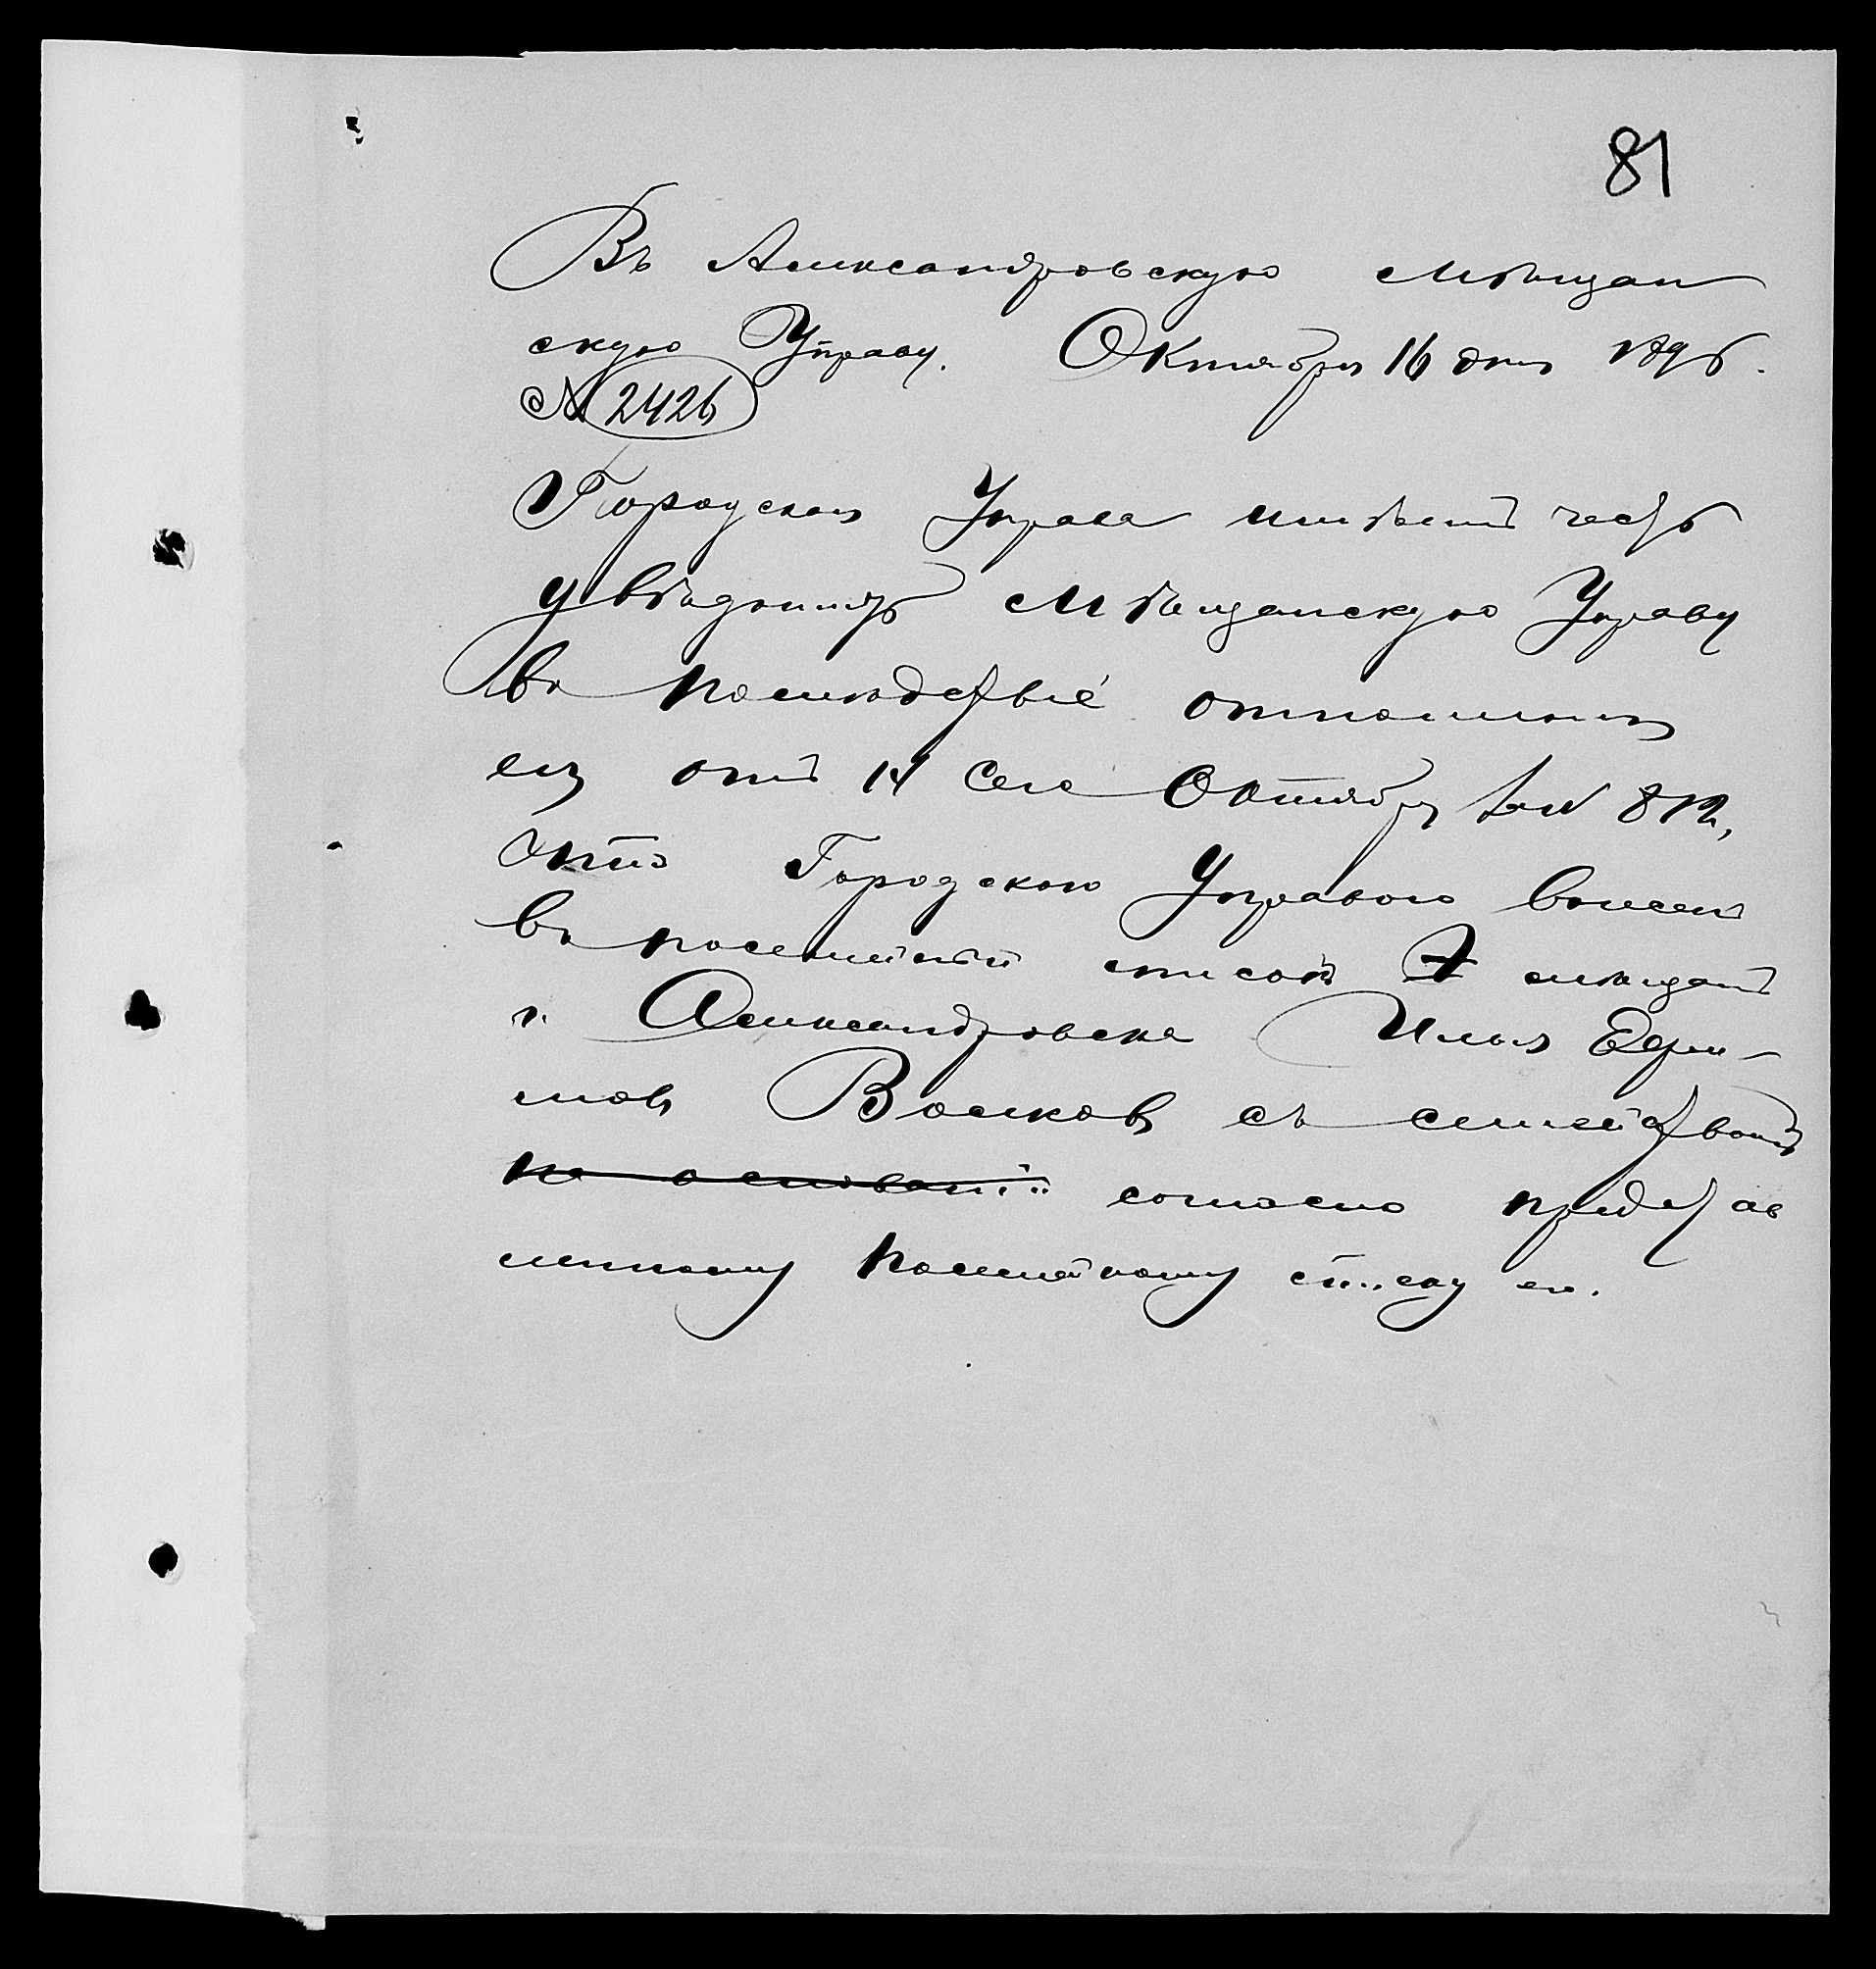 81
Въ Александровскую Мѣщан
скую Управу. Октября 16 дня 1896.
№ 2426
Городская Управа имѣетъ честь
увѣдомить Мѣщанскую Управу
въ послѣдствіе отношенія
ея отъ 14 сего Октября за № 812,
что Городскою Управою внесенъ
въ посемейный списокъ мѣщанъ
г. Александровска Илья Ефи-
мовъ Волковъ съ семействомъ
на основаніи согласно представ
ленному посемейному списку его.